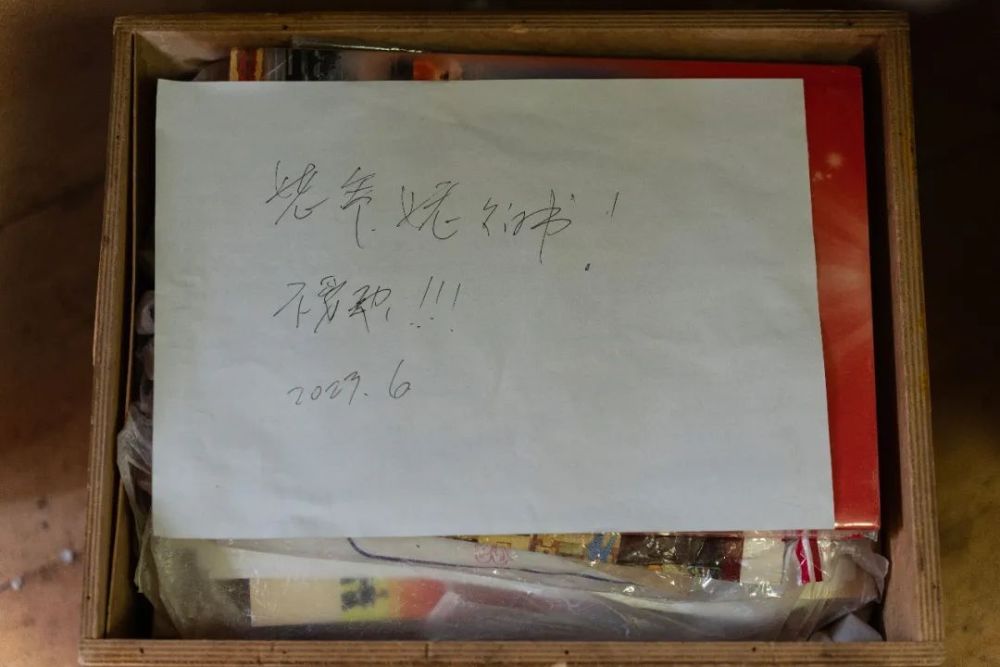 姥爷、姥々的书!
不要动!!!
2023.6